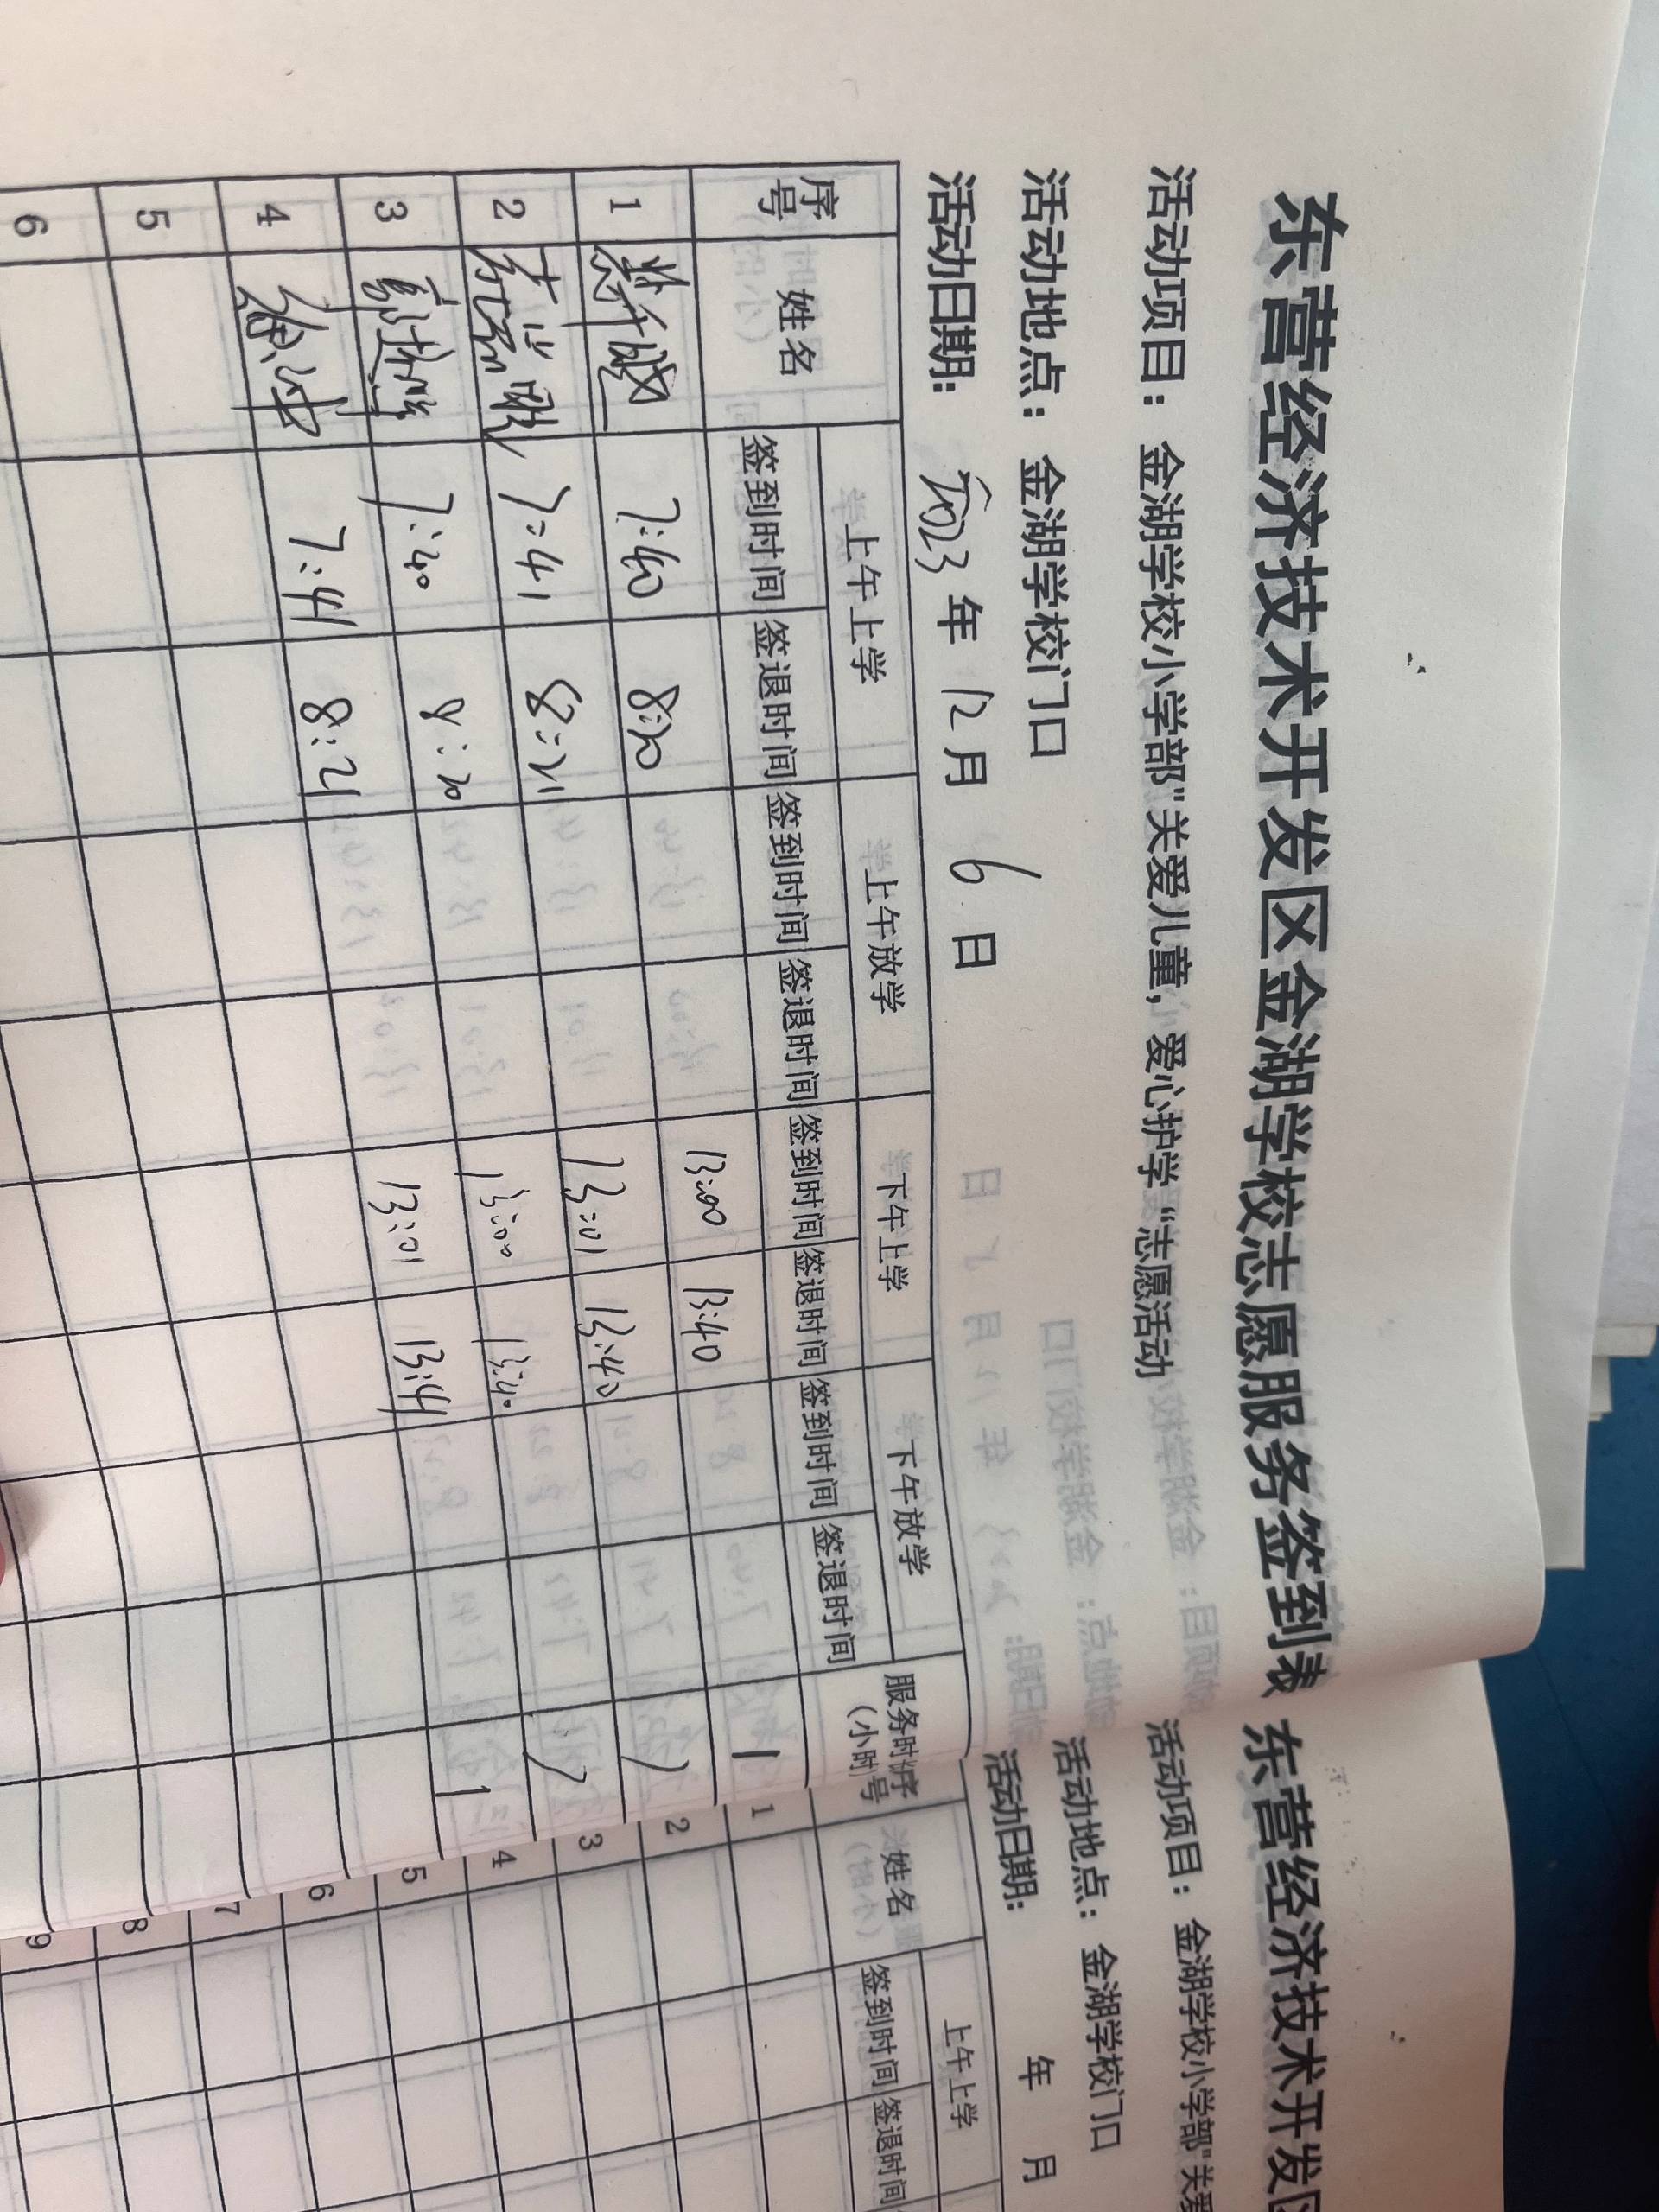 东营经济技术开发区金湖学校志愿服务签到表
活动项目：金湖学校小学部"关爱儿童，爱心护学"志愿活动
活动地点：金湖学校门口
活动日期：2023年12月6日
序号 姓名 上午上学 上午放学 下午上学 下午放学 服务时
(小时
签到时间 签退时间 签到时间 签退时间 签到时间 签退时间 签到时间 签退时间
1 7:40 8:20 13:00 13:40 1
2 7:41 8:21 13:01 13:40 1
3 7:40 8:20 13:00 13:40 1
4 7:41 8:21 13:01 13:41 1
5
6
东营经济技术开发区
活动项目：金湖学校小学部"关爱
活动地点：金湖学校门口
活动日期： 年 月
序号 姓名 上午上学
签到时间 签退时间
1
2
3
4
5
6
7
8
9